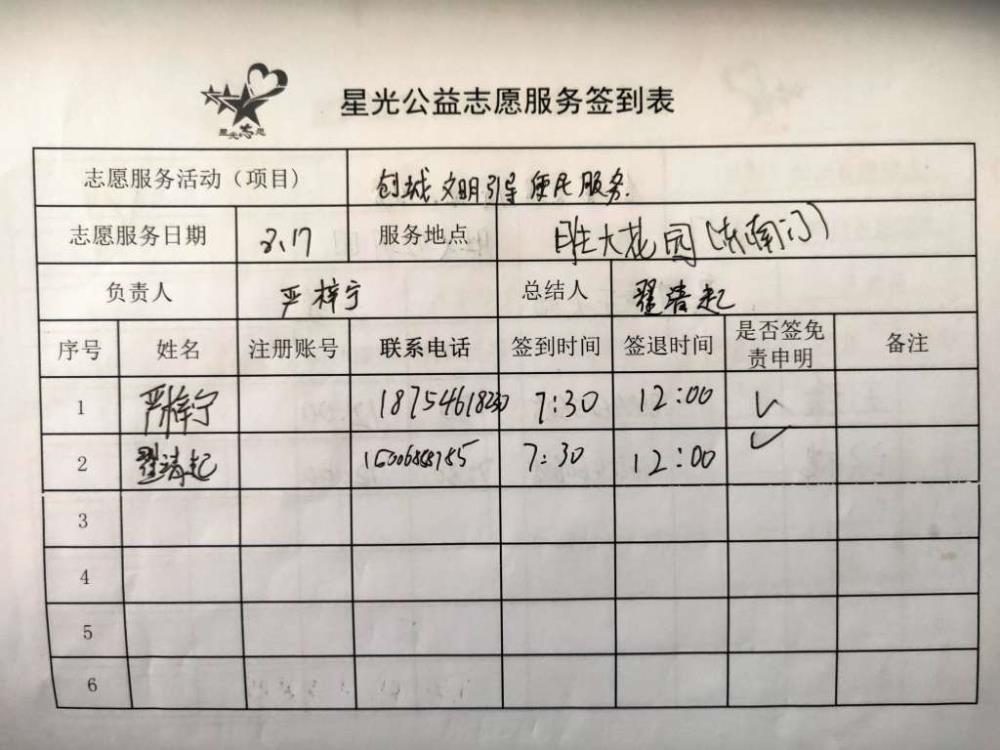 星光志愿
星光公益志愿服务签到表
志愿服务活动（项目） 创城文明引导便民服务.
志愿服务日期 3.17 服务地点 胜大花园(东南门)
负责人 严梓宁 总结人 翟清起
序号 姓名 注册账号 联系电话 签到时间 签退时间 是否签免
责申明 备注
1 严梓宁 18754618230 7:30 12:00 ✓
2 翟清起 7:30 12:00 ✓
3
4
5
6